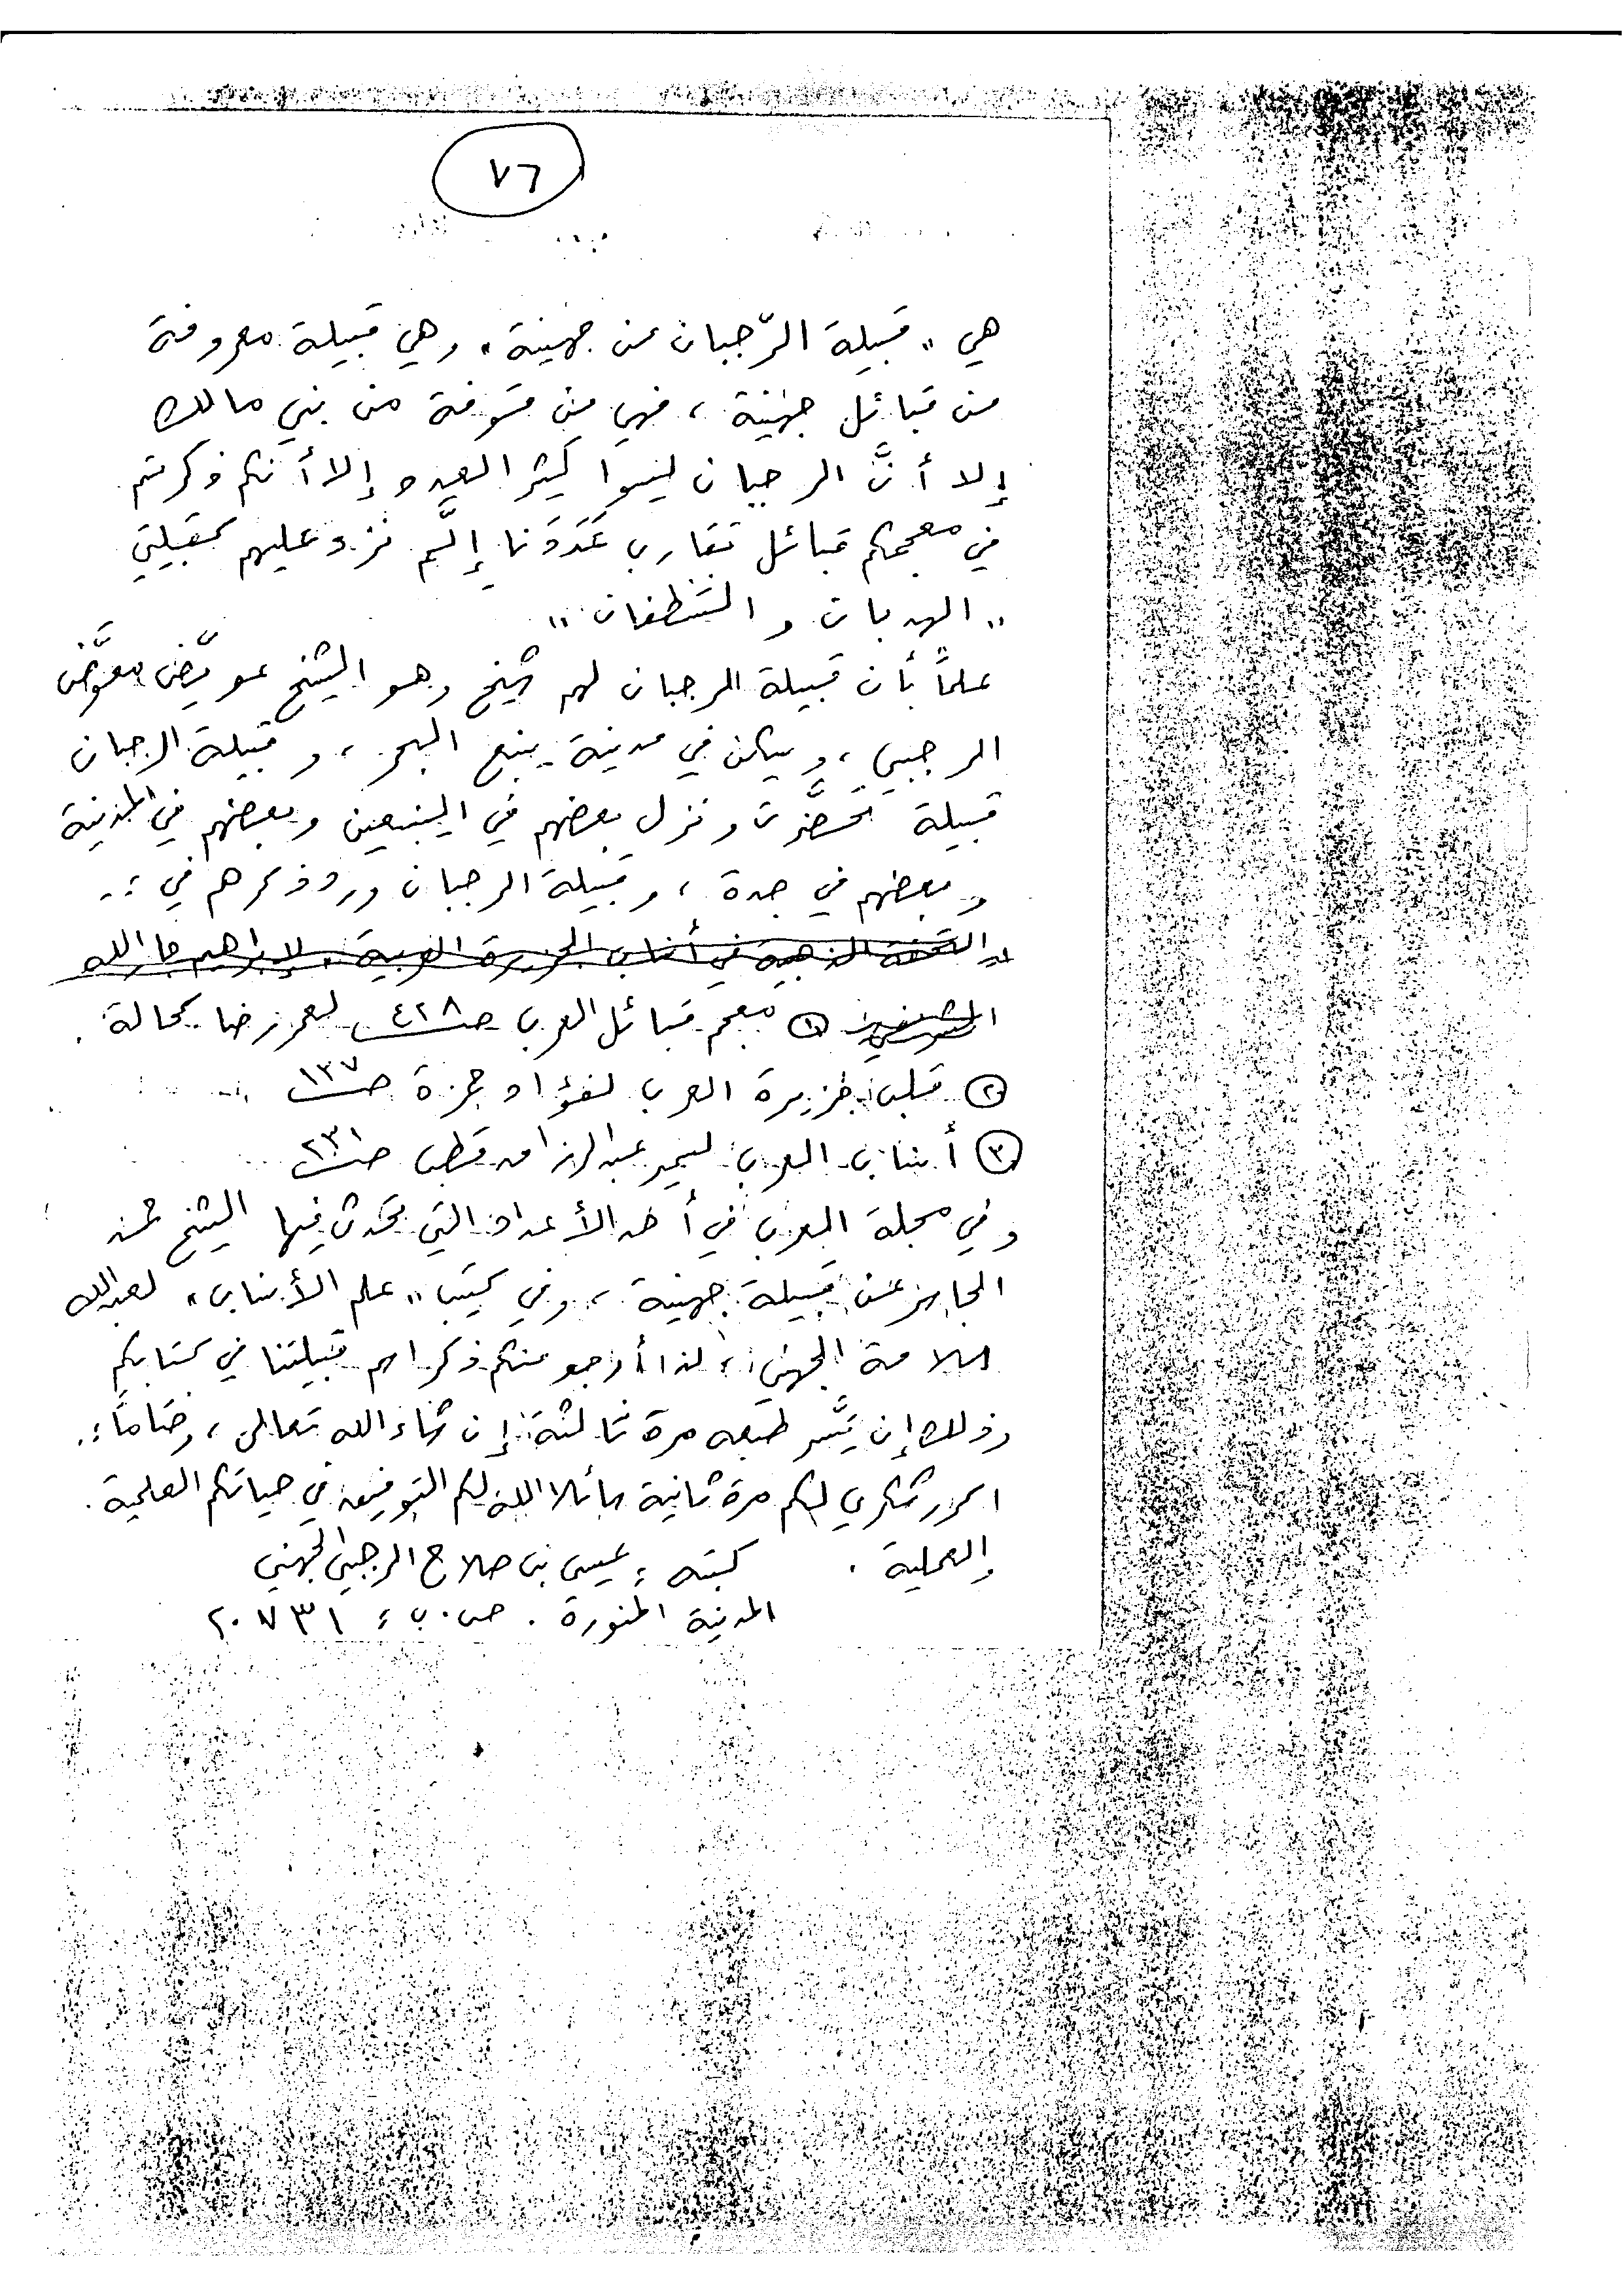 ٧٦
هي " قبيلة الرّجبان من جهينة " وهي قبيلة معروفة
من قبائل جهينة ، فهي من من بني مالك
إلا أنَّ الرجبان ليسوا كثير العدد إلا أنكم ذكرتم
في معجمكم قبائل تقارب عَدَدَنا إلَّم نزد عليهم كقبيلتي
" الهدبان و الشطفان "
علماً بأن قبيلة الرجبان لهم شيخ وهو الشيخ عويّض معوَّض
الرجبي ، ويسكن في مدينة ينبع البحر ، و قبيلة الرجبان
قبيلة تحضَّرت ونزل بعضهم في الينبعين وبعضهم في المدينة
وبعضهم في جدة ، وقبيلة الرجبان ورد ذكرهم في :-
" التحفة الذهبية في أنساب الجزيرة العربية " لإبراهيم جارالله
الشريفي ① معجم قبائل العرب صـ ٤٢٨ لعمر رضا كحالة .
② قلب جزيرة العرب لفؤاد حمزة صـ ١٣٧
③ أنساب العرب لسمير عبدالرزاق قطب صـ ٢٣١
وفي مجلة العرب في أحد الأعداد التي تحدث فيها الشيخ حمد
الجاسر عن قبيلة جهينة ، وفي كتيب " علم الأنساب " لعبدالله
سلامة الجهني ، لذا أرجو منكم ذكر اسم قبيلتنا في كتابكم
وذلك إن يَسَّر طبعه مرة ثالثة إن شاء الله تعالى ، وختاماً :
أكرر شكري لكم مرة ثانية سائلا الله لكم التوفيق في حياتكم العلمية .
والعملية . كتبه : عيسى بن صلاح الرجبي الجهني
المدينة المنورة . ص . ب : ٢٠٧٣١